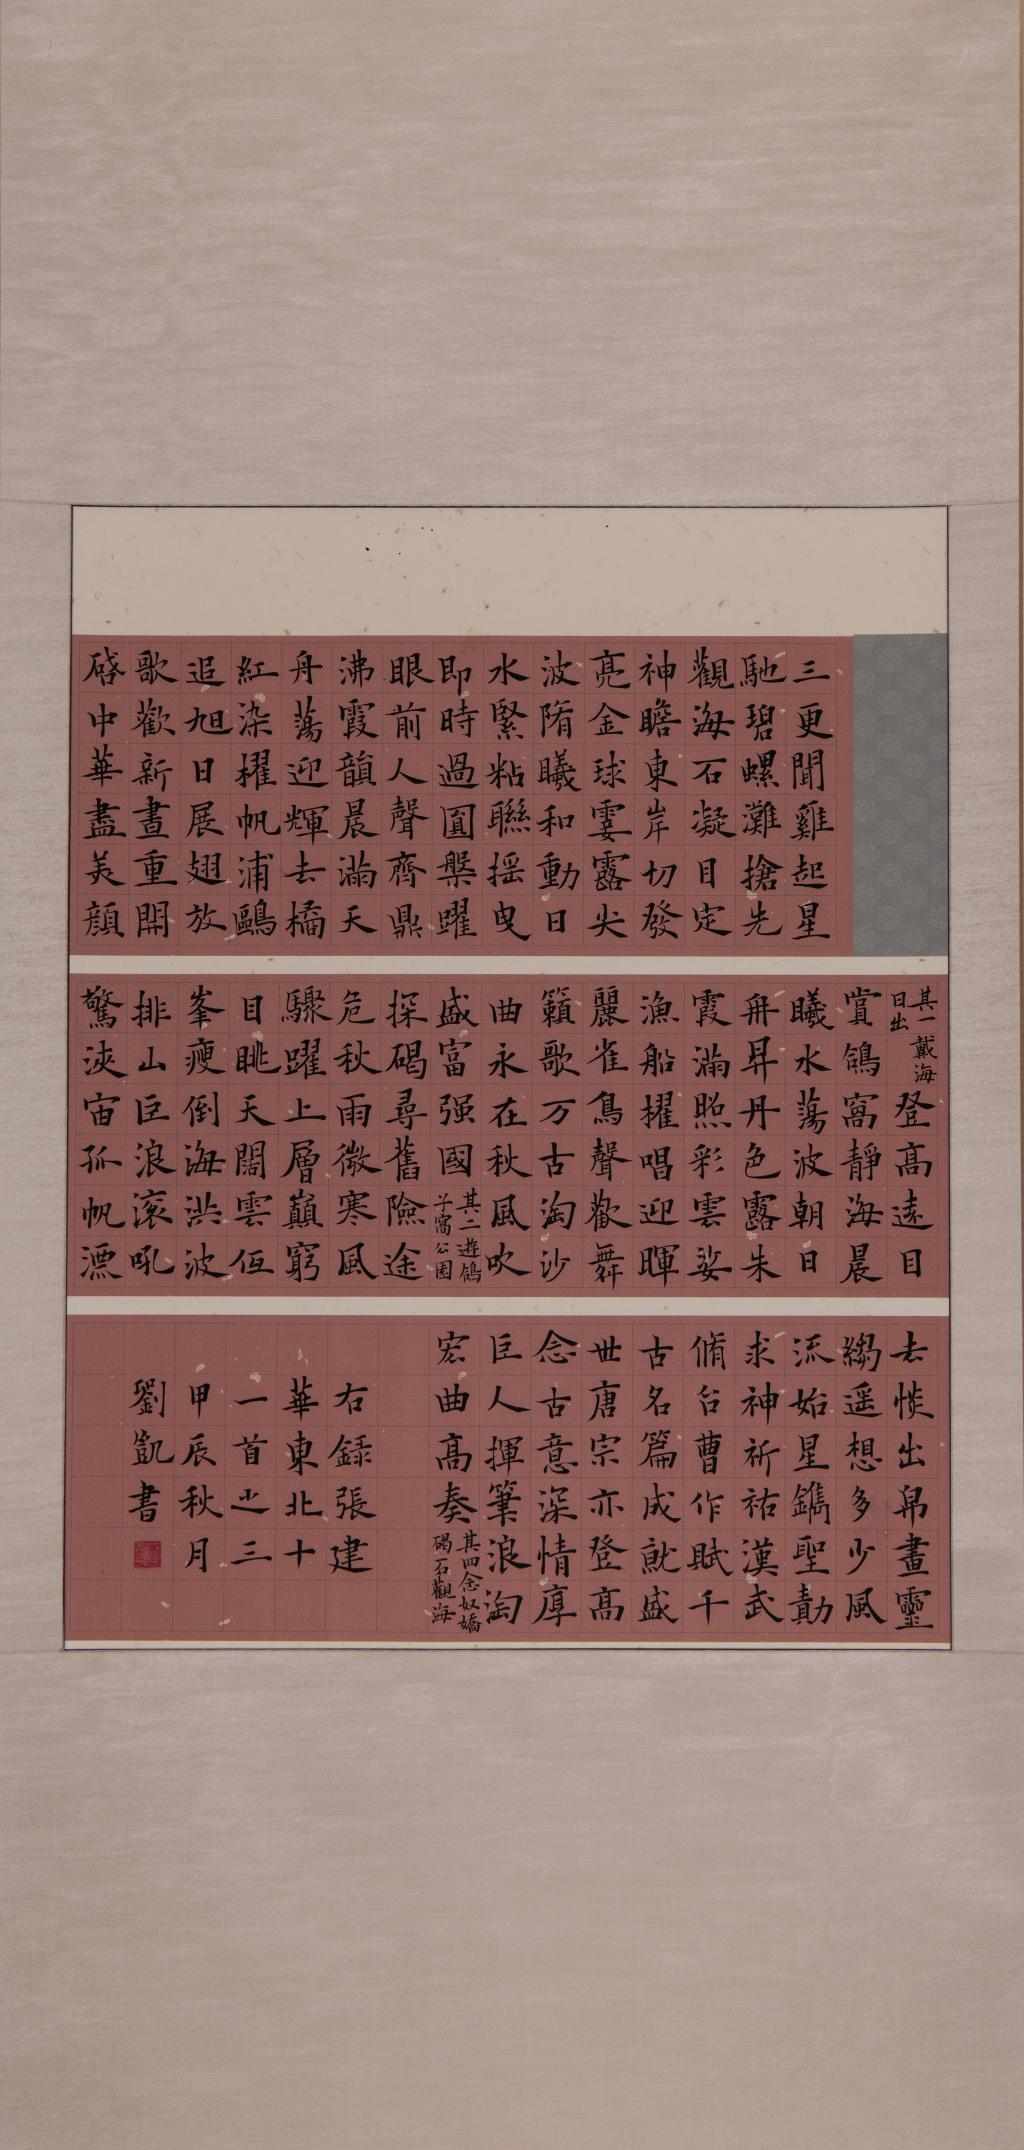 三更聞雞起星
馳碧螺灘搶先
觀海石凝目定
神瞻東岸切發
亮金球霎露尖
波隋曦和動日
水緊粘聯揺曳
即時過圓槃躍
眼前人聲齊鼎
沸霞韻晨滿天
舟蕩迎輝去橘
紅染櫂帆浦鷗
追旭日展翅放
歌歡新晝重開
啓中華盡美顔
其一戴海
日出
登高遠目
賞鴿窩靜海晨
曦水蕩波朝日
舟昇丹色露朱
霞滿照彩雲娑
漁船櫂唱迎暉
麗雀鳥聲歡舞
籟歌万古淘沙
曲永在秋風吹
盛富强國
其二遊鴿
子窩公園
探碣尋舊險途
危秋雨微寒風
驟躍上層巔窮
目眺天闊雲恆
峯瘦倒海洪波
排山巨浪滚吼
驚浹宙孤帆漂
去惔出帛畫靈
縐遥想多少風
流始皇鐫聖勣
求神祈祐漢武
脩台曹作賦千
古名篇成就盛
世唐宗亦登高
念古意深情厚
巨人揮筆浪淘
宏曲高奏
其四念奴嬌
碣石觀海
右録張建
華東北十
一首之三
甲辰秋月
劉凱書